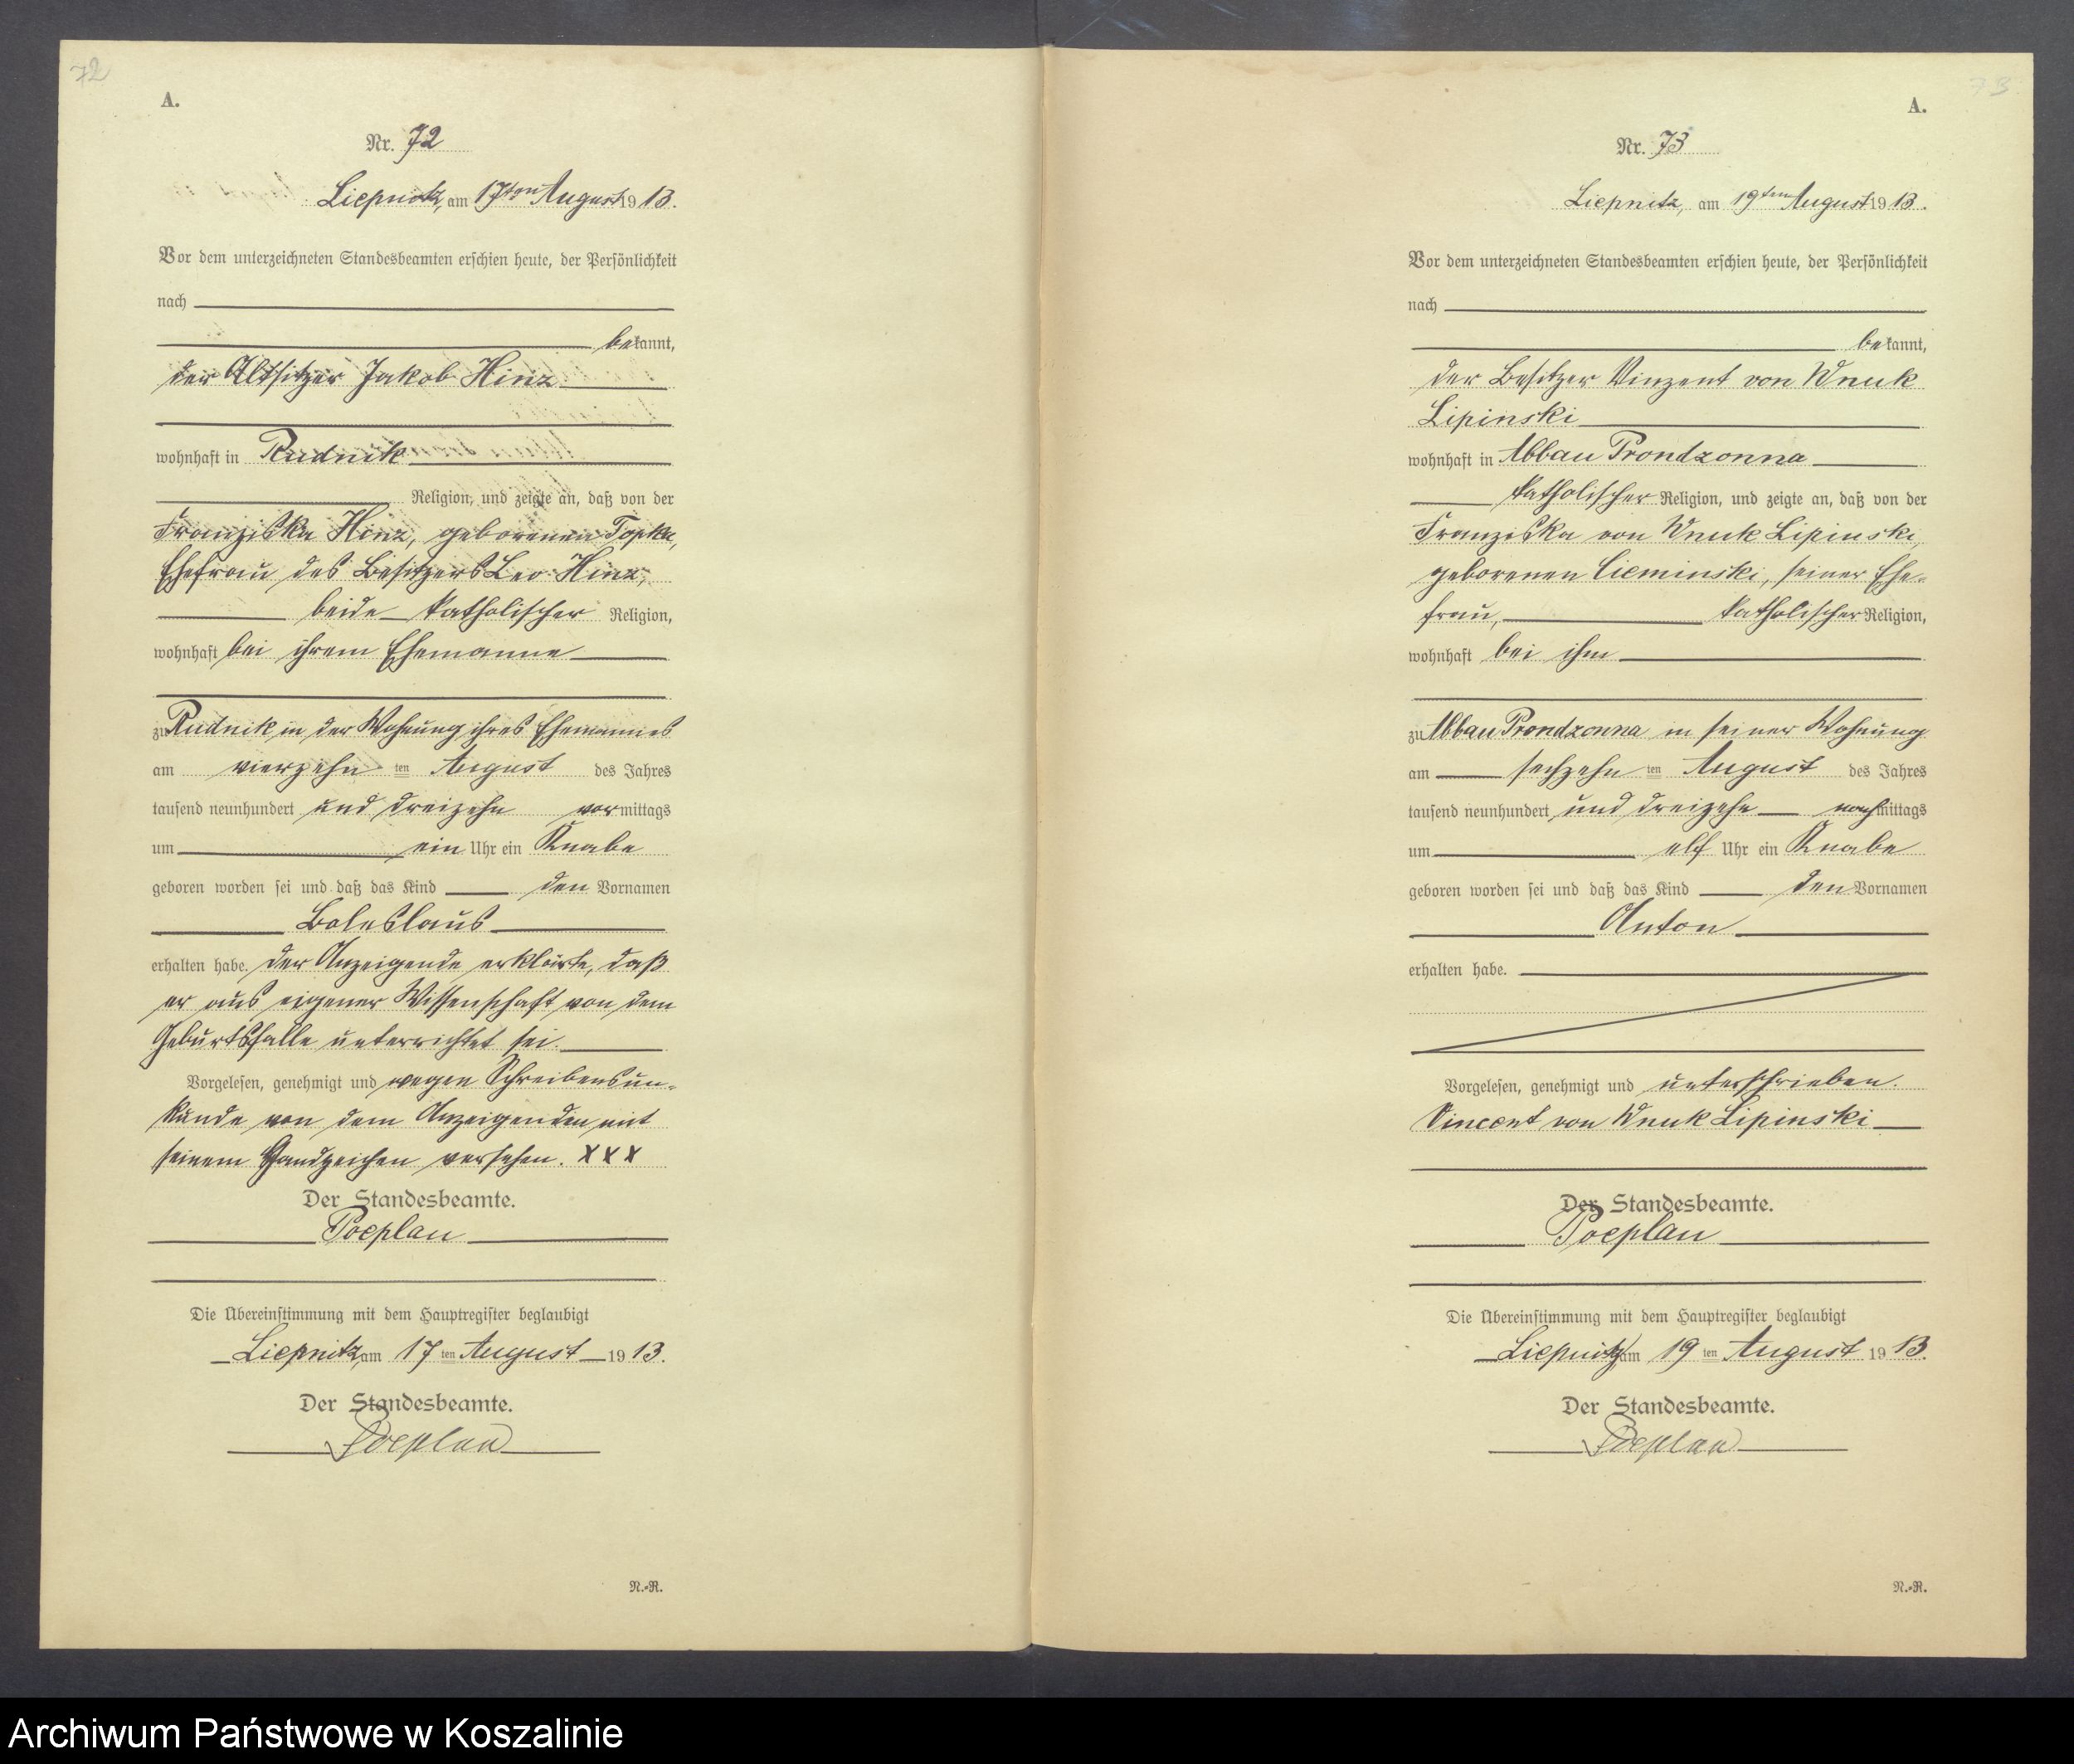 72
A.
Nr. 72
Liepnitz, am 17ten August 1913.
Vor dem unterzeichneten Standesbeamten erschien heute, der Persönlichkeit
nach
bekannt,
der Altsitzer Jakob Hinz
wohnhaft in Rudnik
Religion, und zeigte an, daß von der
Franziska Hinz, geborenen Topka,
Ehefrau des Besitzers Leo Hinz,
beide katholischer Religion,
wohnhaft bei ihrem Ehemanne
zu Rudnik in der Wohnung ihres Ehemannes
am vierzehn ten August des Jahres
tausend neunhundert und dreizehn vormittags
um ein Uhr ein Knabe
geboren worden sei und daß das Kind den Vornamen
Boleslaus
erhalten habe. Der Anzeigende erklärte, daß
er aus eigener Wissenschaft von dem
Geburtsfalle unterrichtet sei.
Vorgelesen, genehmigt und wegen Schreibensun-
kunde von dem Anzeigenden mit
seinem Handzeichen versehen. XXX
Der Standesbeamte.
Poeplau
Die Übereinstimmung mit dem Hauptregister beglaubigt
Liepnitz, am 17 ten August 1913.
Der Standesbeamte.
Poeplau
N.-R.
73
A.
Nr. 73
Liepnitz, am 19ten August 1913.
Vor dem unterzeichneten Standesbeamten erschien heute, der Persönlichkeit
nach
bekannt,
der Besitzer Vinzent von Wnuk
Lipinski
wohnhaft in Abbau Prondzonna
katholischer Religion, und zeigte an, daß von der
Franziska von Wnuk Lipinski,
geborenen Cieminski, seiner Ehe-
frau, katholischer Religion,
wohnhaft bei ihm
zu Abbau Prondzonna in seiner Wohnung
am sechzehn ten August des Jahres
tausend neunhundert und dreizehn nachmittags
um elf Uhr ein Knabe
geboren worden sei und daß das Kind den Vornamen
Anton
erhalten habe.
Vorgelesen, genehmigt und unterschrieben.
Vincent von Wnuk Lipinski
Der Standesbeamte.
Poeplau
Die Übereinstimmung mit dem Hauptregister beglaubigt
Liepnitz am 19 ten August 1913.
Der Standesbeamte.
Poeplau
N.-R.
Archiwum Państwowe w Koszalinie